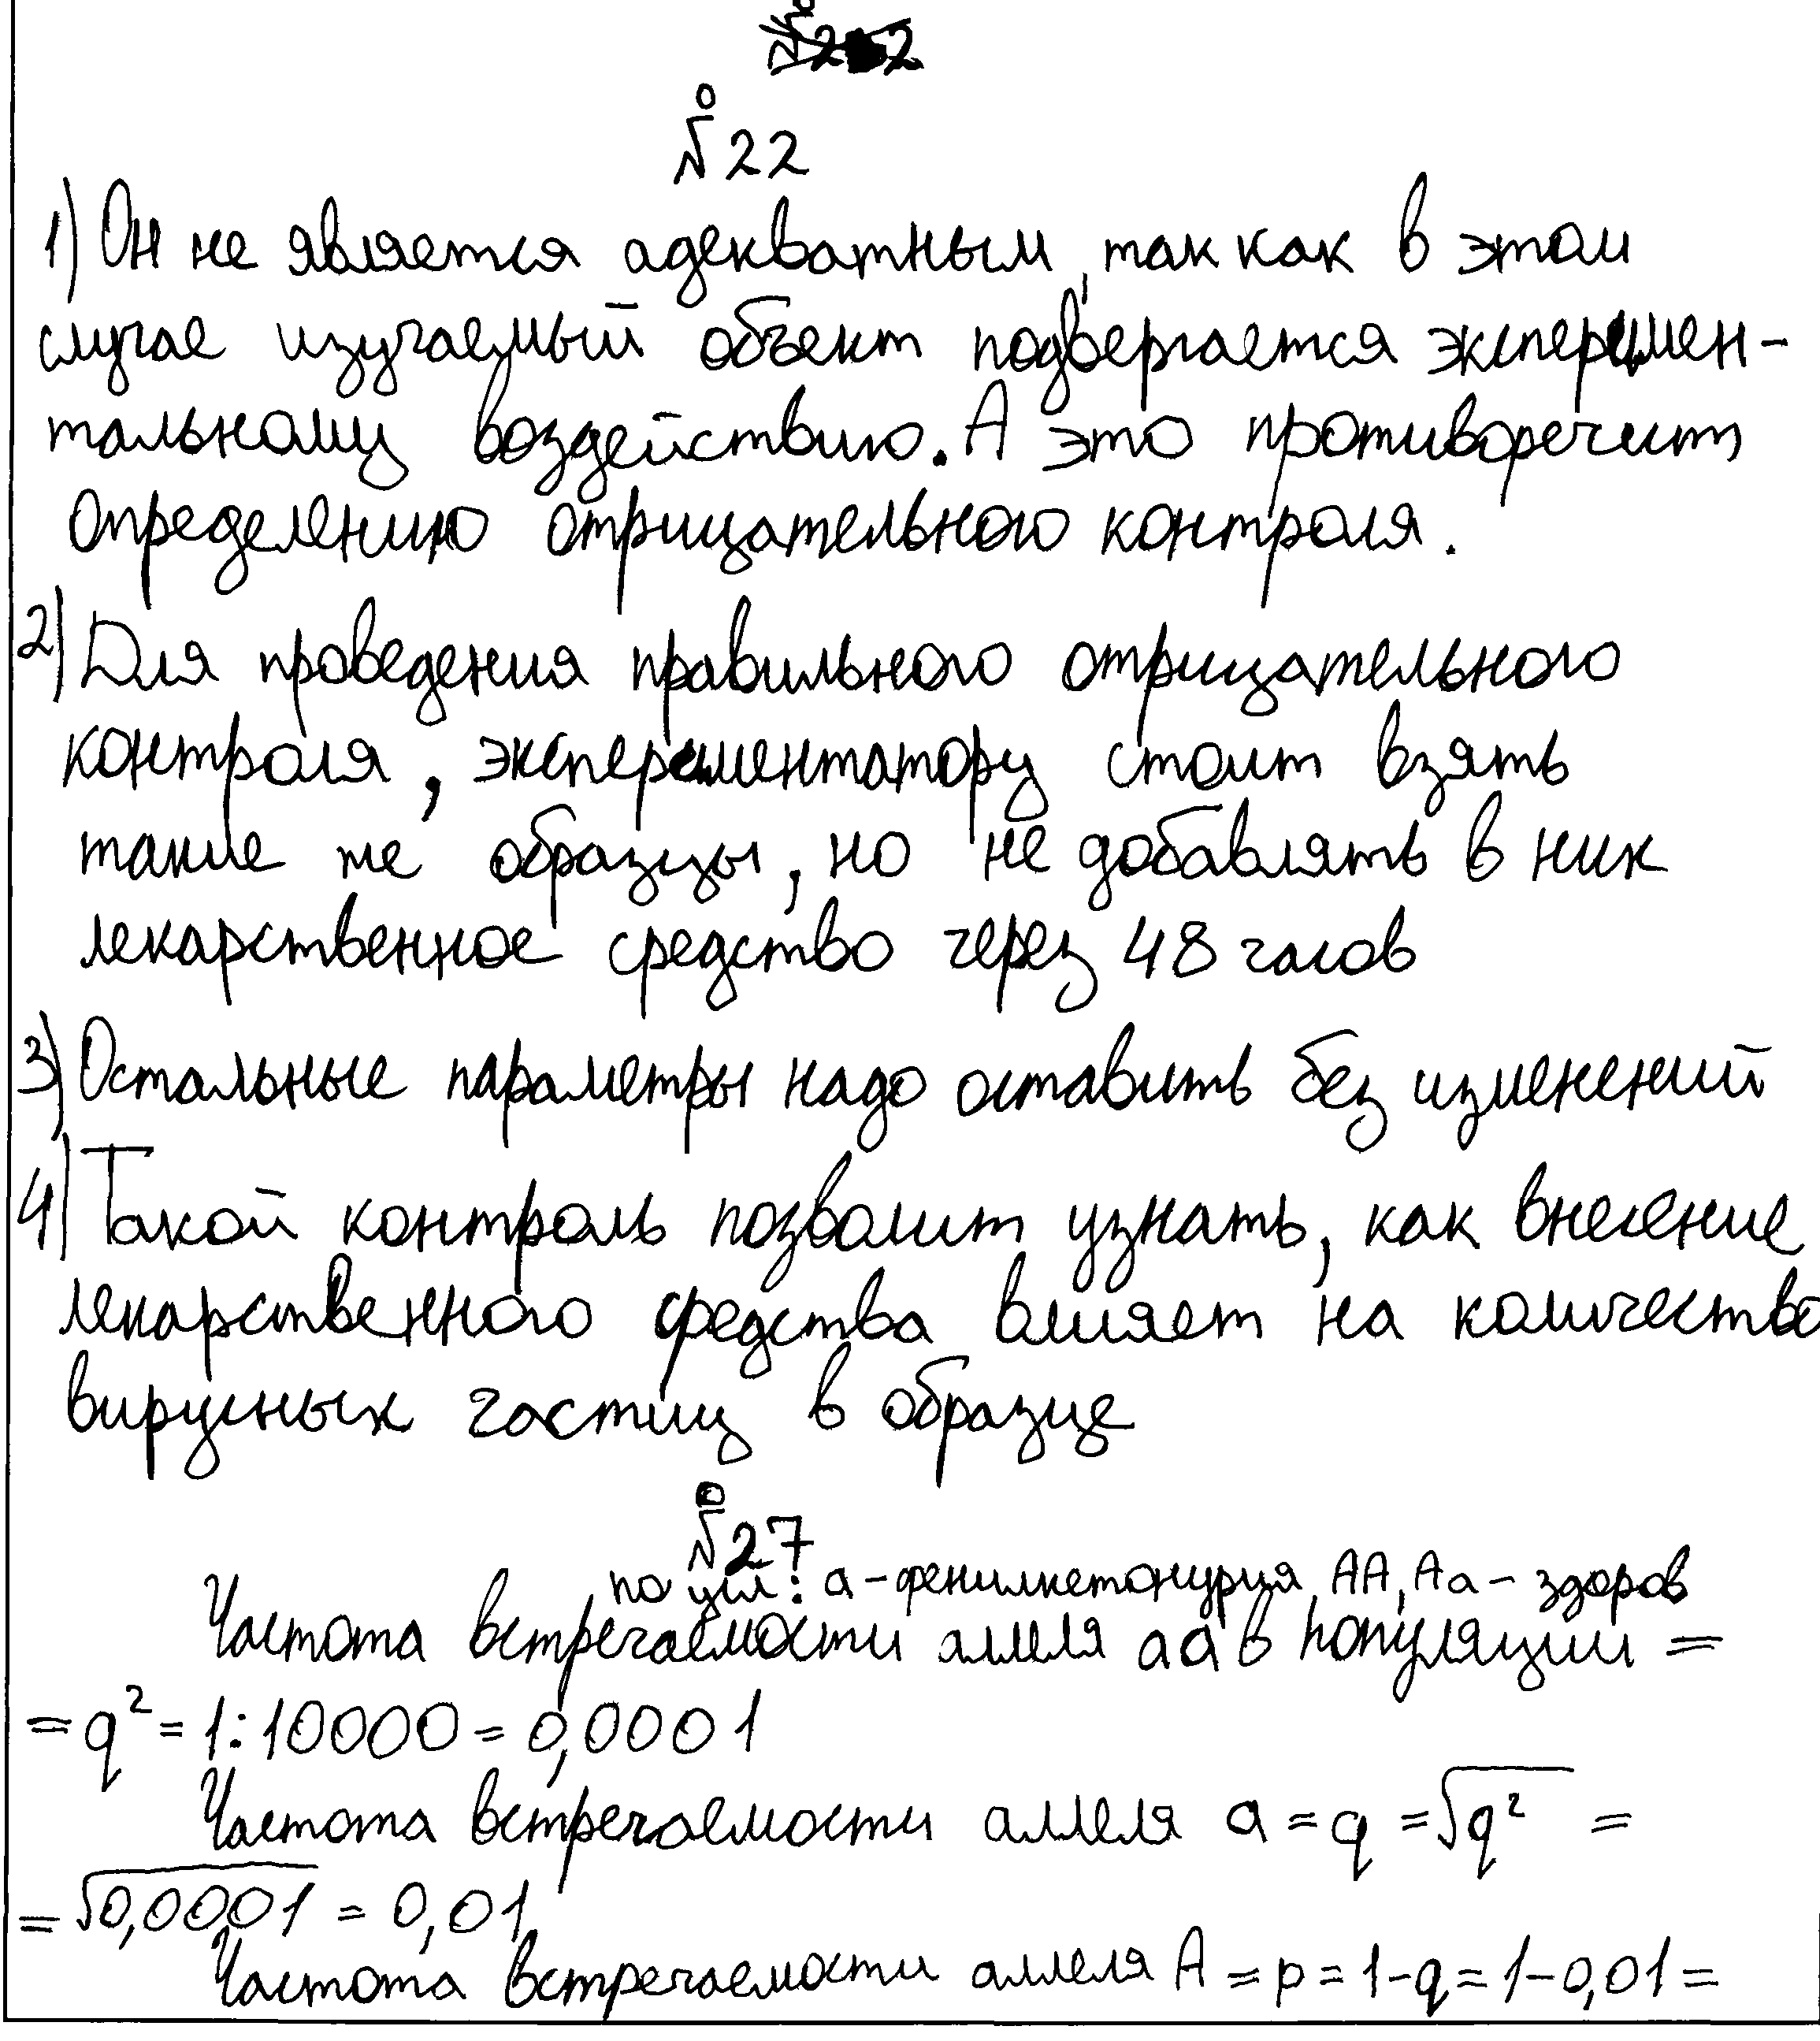 №22
1) Он не является адекватным, так как в этом
случае изучаемый объект подвергается эксперимен-
тальному воздействию. А это противоречит
определению отрицательного контроля.
2) Для проведения правильного отрицательного
контроля, экспериментатору стоит взять
такие же образцы, но не добавлять в них
лекарственное средство через 48 часов
3) Остальные параметры надо оставить без изменений
4) Такой контроль позволит узнать, как внесение
лекарственного средства влияет на количество
вирусных частиц в образце
№27
по усл: а - фенилкетонурия, АА, Аа - здоров
Частота встречаемости аллеля аа в популяции =
= q² = 1:10000 = 0,0001
Частота встречаемости аллеля а = q = √q² =
= √0,0001 = 0,01
Частота встречаемости аллеля А = p = 1-q = 1-0,01 =